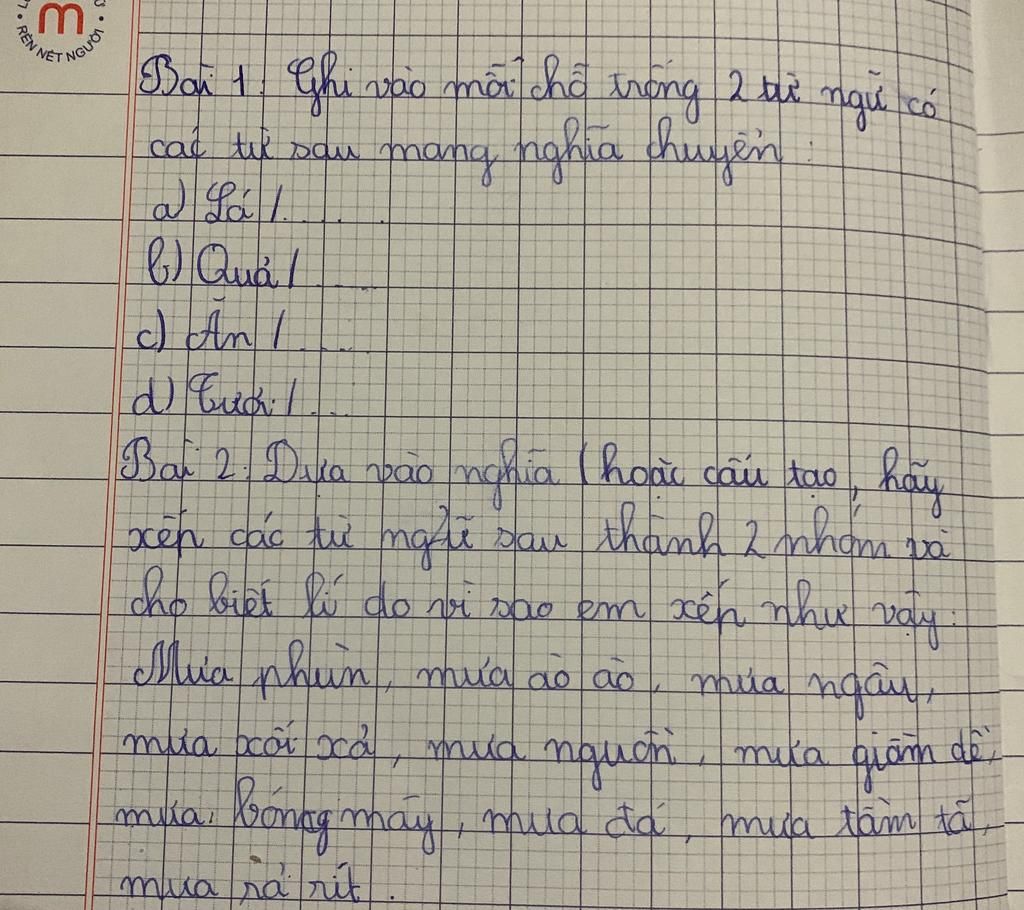 RÈN NẾT NGƯỜI
Bài 1: Ghi vào mỗi chỗ trống 2 từ ngữ có
các từ sau mang nghĩa chuyển:
a) Lá /........
b) Quả /........
c) Ăn /........
d) Tươi /........
Bài 2: Dựa vào nghĩa (hoặc cấu tạo, hãy
xếp các từ ngữ sau thành 2 nhóm và
cho biết lí do vì sao em xếp như vậy:
Mưa phùn, mưa ào ào, mưa ngâu,
mưa xối xả, mưa nguồn, mưa giầm dề,
mưa bóng mây, mưa đá, mưa tầm tã,
mưa rả rít.